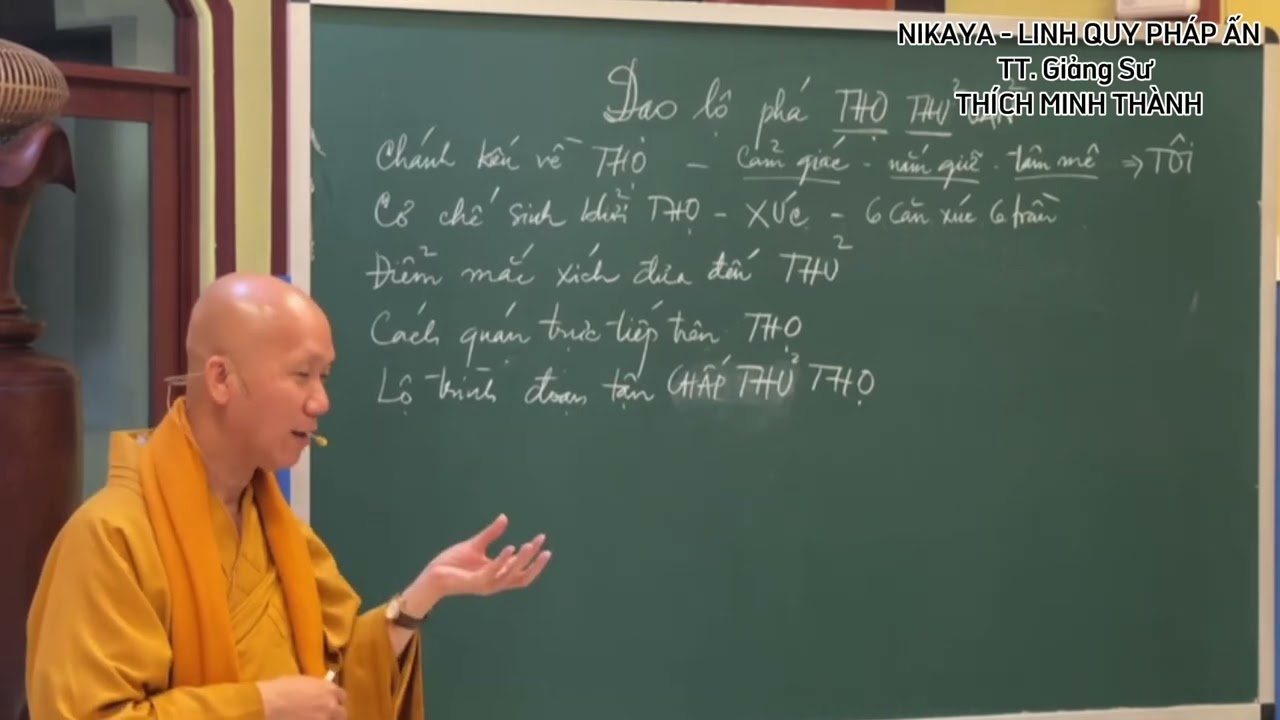 NIKAYA - LINH QUY PHÁP ẤN
TT. Giảng Sư
THÍCH MINH THÀNH
Đạo lộ phá THỌ THỦ
Chánh kiến về THỌ - Cảm giác - nắm giữ - tâm mê ⇒ TÔI
Cơ chế sinh khởi THỌ - XÚC - 6 căn xúc 6 trần
Điểm mắc xích đưa đến THỦ
Cách quán trực tiếp trên THỌ
Lộ trình đoạn tận CHẤP THỦ THỌ